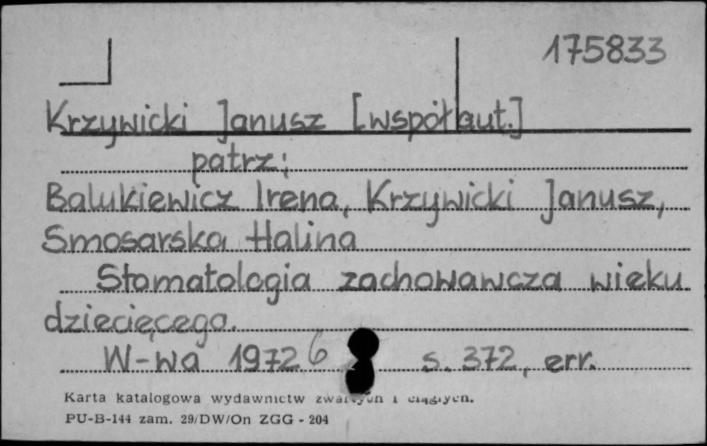 175833
Krzywicki Janusz [współaut.]
patrz:
Balukiewicz Irena, Krzywicki Janusz,
Smosarska Halina
Stomatologia zachowawcza wieku
dziecięcego.
W-wa 1972 6 s. 372, err.
Karta katalogowa wydawnictw zwartych i ciągłych.
PU-B-144 zam. 29/DW/On ZGG - 204